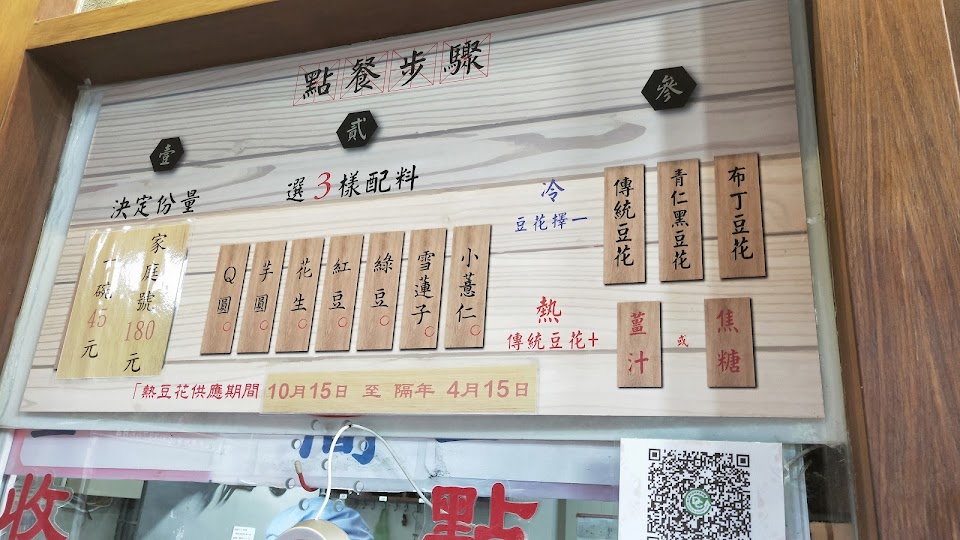 點餐步驟
壹
決定份量
一碗45元
家庭號180元
貳
選3樣配料
Q圓
芋圓
花生
紅豆
綠豆
雪蓮子
小薏仁
參
冷
豆花擇一
傳統豆花
青仁黑豆花
布丁豆花
熱
傳統豆花+
薑汁
或
焦糖
「熱豆花供應期間 10月15日 至 隔年 4月15日
收
點